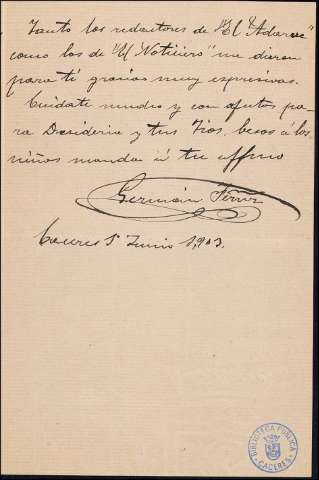 Tanto los redactores de "El Adarve"
como los de "El Noticiero" me dieron
para ti gracias muy expresivas.
Cuidate mucho y con afectos pa-
ra Desideria y tus Tios, besos á los
niños manda á tu affmo
Germán
Caceres 1º Junio 1,903.
BIBLIOTECA PUBLICA
CACERES